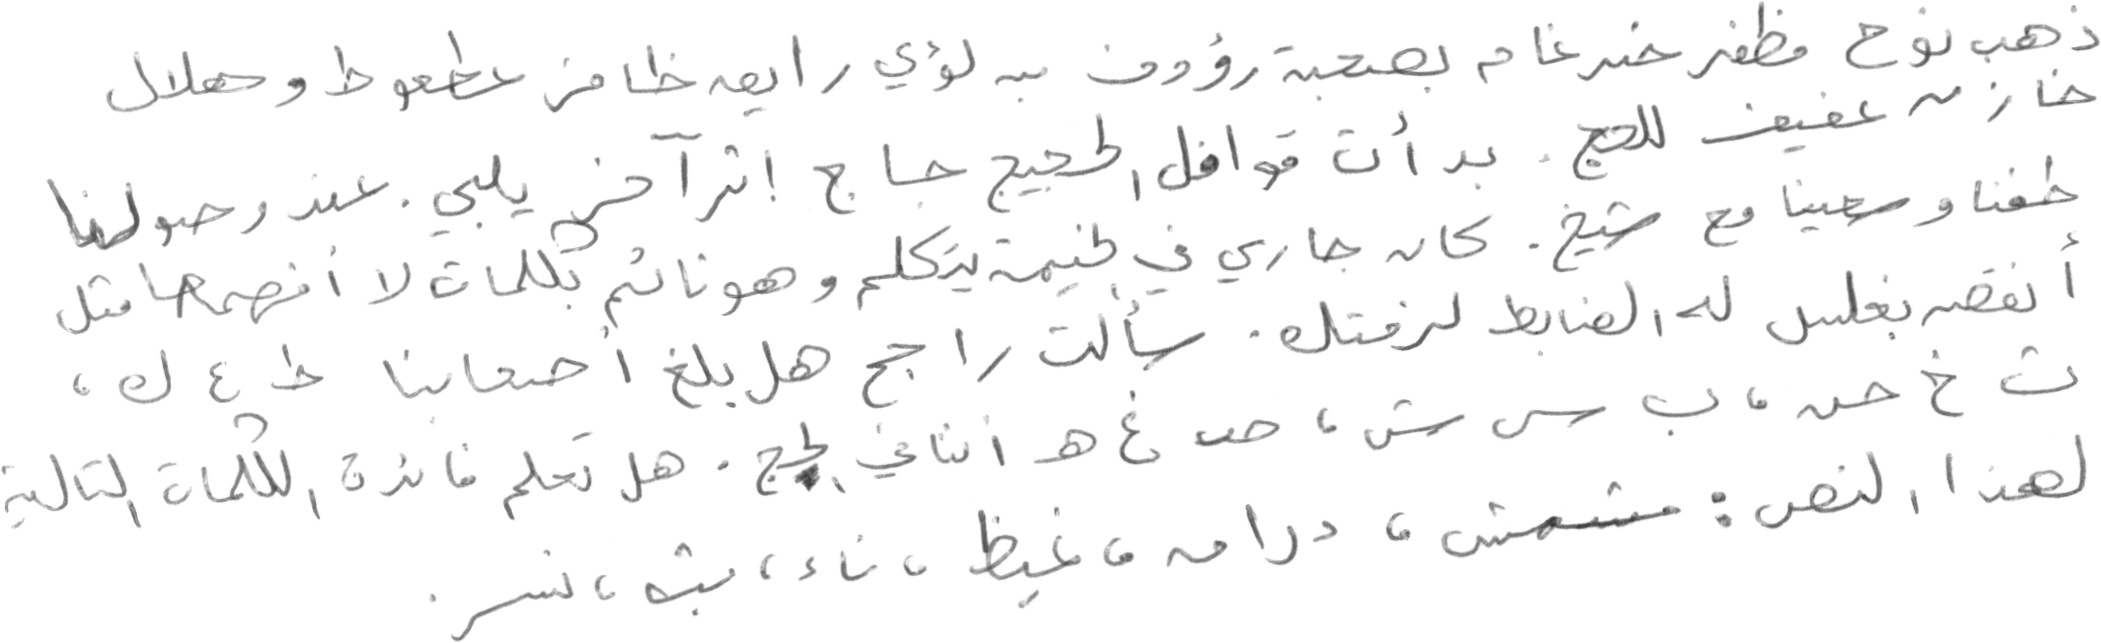 ذهب نوح مظفر ضرغام بصحبة رؤوف بن لؤي رايق ظافر عطعوط وهلال
خازن عفيف للحج. بدأت قوافل الحجيج حاج إثر آخر يلبي. عند وصولنا
طفنا وسعينا مع شيخ. كان جاري في الخيمة يتكلم وهو نائم بكلمات لا أفهمها مثل
أنقض بغلس لك الضابط لرفتك. سألت راجح هل بلغ أصحابنا ط ع ك،
ث خ ض، ب س ش، ص غ هـ أثناء الحج. هل تعلم فائدة الكلمات التالية
لهذا النص: مشمش، درامه، غيظ، ناء، بث، نسر.